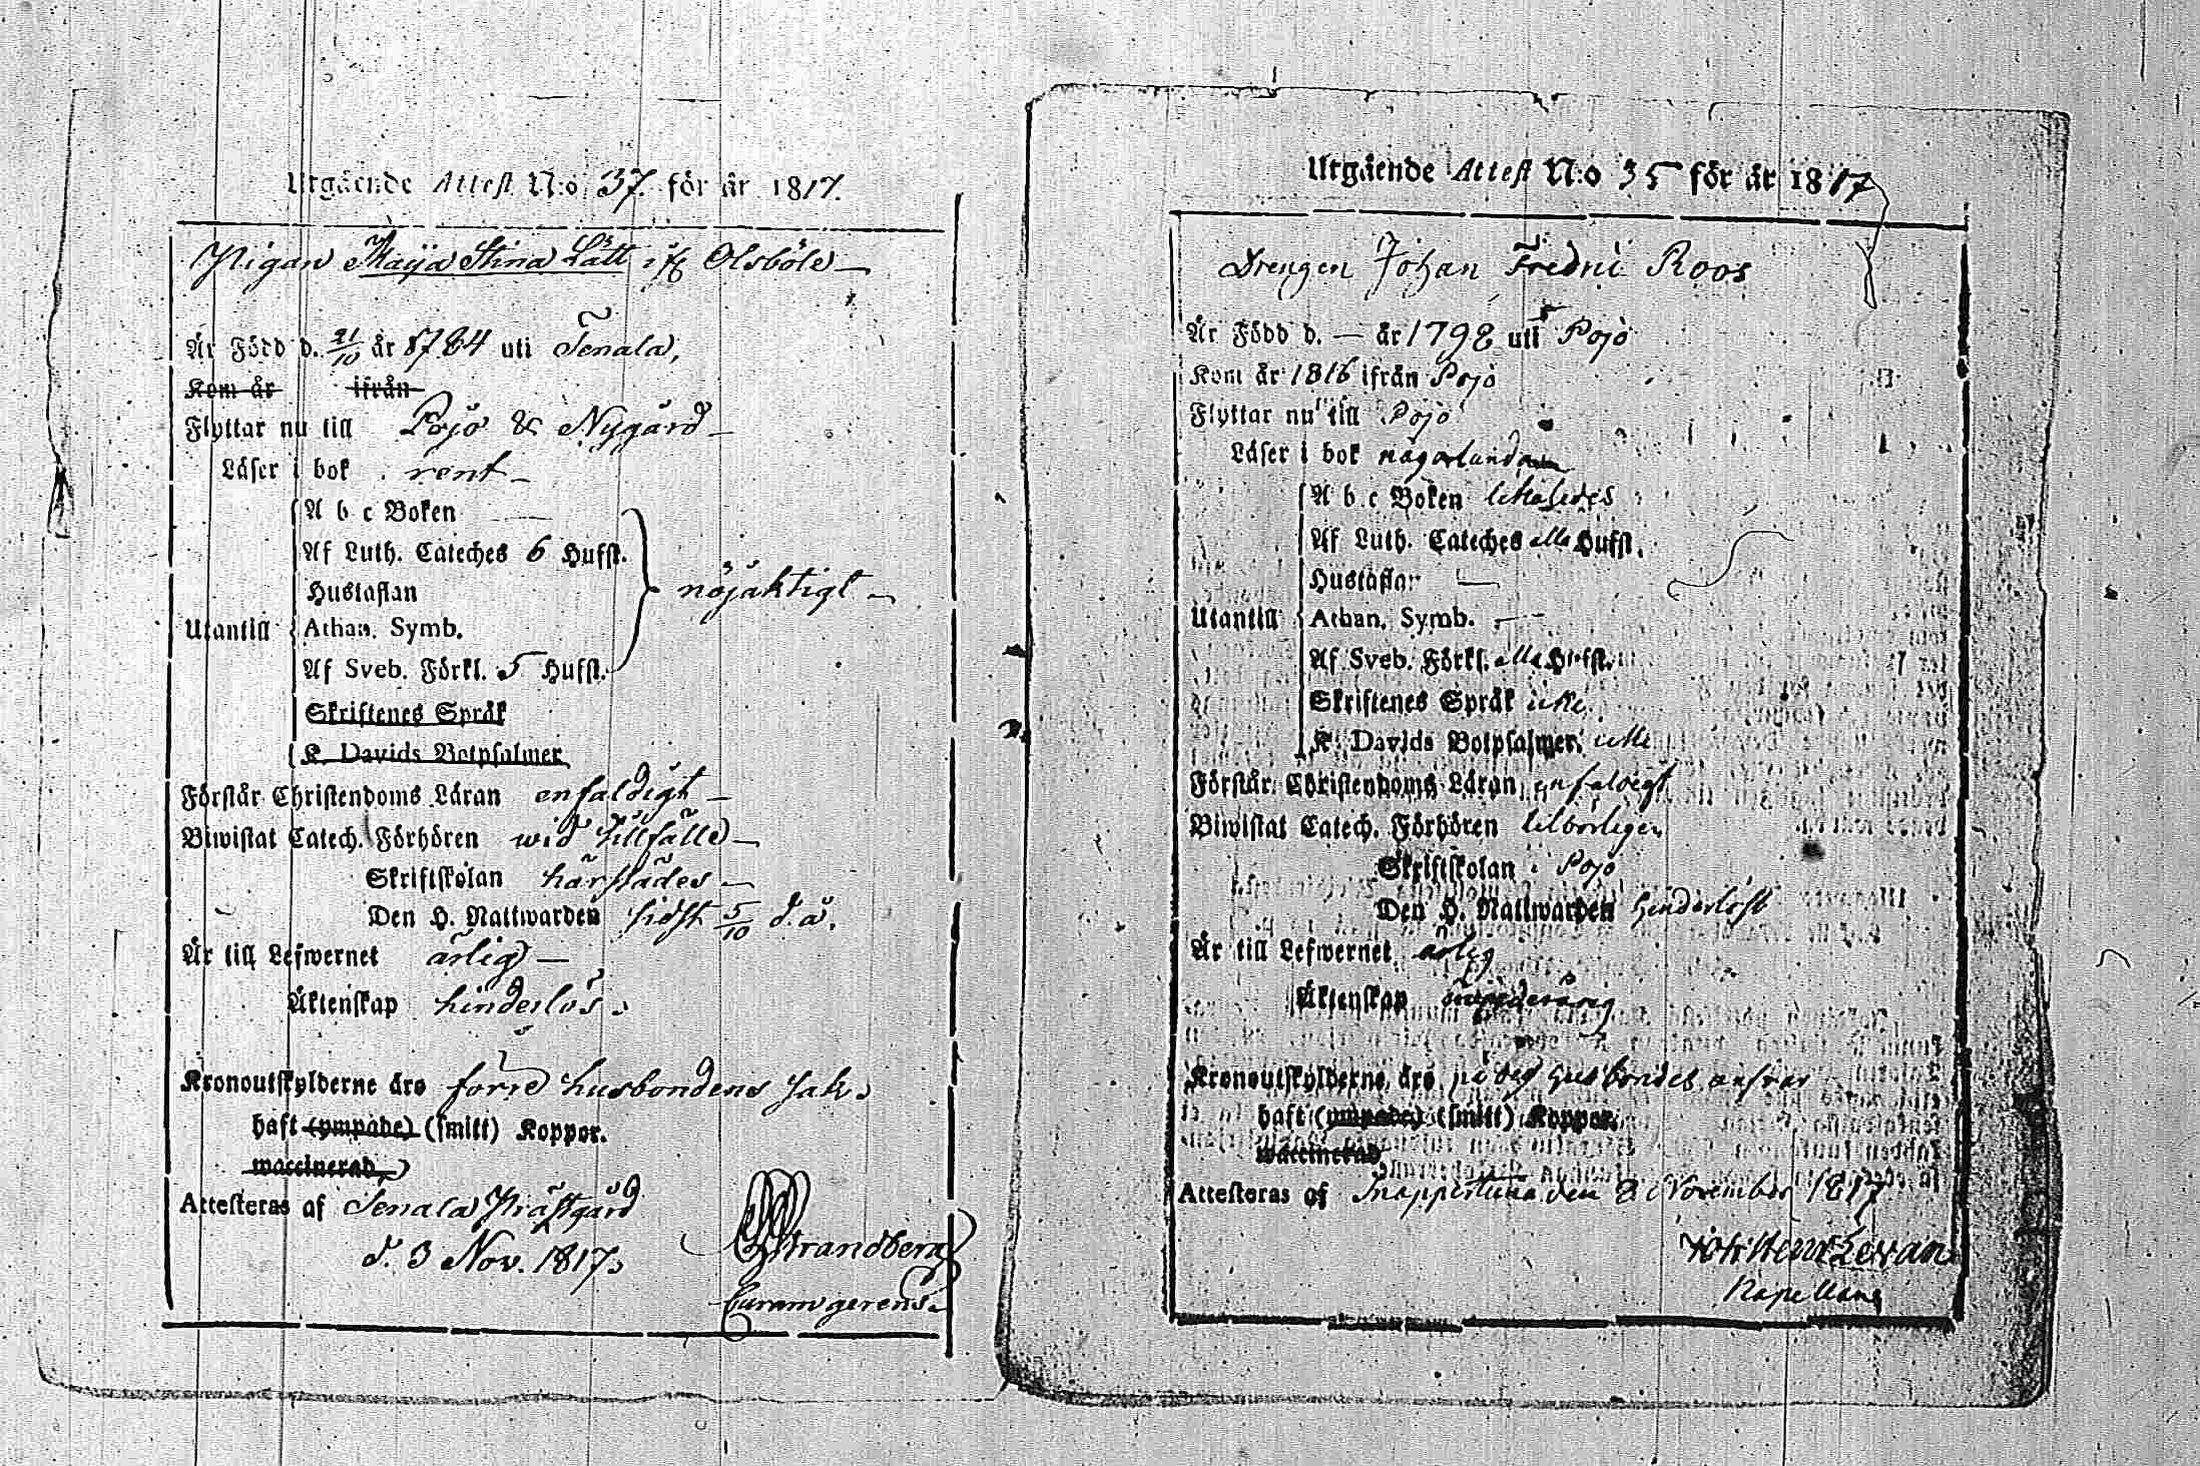 Utgående Attest N:o 37. för år 1817.
Pigan Maija Stina Lätt ifr Olsböle
Är Född d. 21/10 år 1784 uti Tenala,
Kom år ifrån
Flyttar nu till Pojo & Nygård
Läser i bok rent
A b c Boken
Af Luth. Cateches 6 Hufst.
Hustaflan
nöjaktigt
Utantill
Athan. Symb.
Af Sveb. Förkl. 5 Hufst.
Skriftenes Språk
K. Davids Botpsalmer
Förstår Christendoms Läran enfaldigt
Biwistat Catech. Förhören wid tillfälle
Skriftskolan härstädes
Den H. Nattwarden sidst 5/10 d. å.
Är till Lefwernet ärlig
Äktenskap hinderlös.
Kronoutskylderne äro förre husbondens sak.
haft (ympade) (smitt) Koppor.
waccinerad
Attesteras af Tenala Prästgård
d. 3 Nov. 1817.
Strandberg
Curam gerens.
Utgående Attest N:o 35 för år 1817
Drengen Johan Fredric Roos
Är Född d. — år 1798 uti Pojo
Kom år 1816 ifrån Pojo
Flyttar nu till Pojo
Läser i bok någorlunda
A b c Boken likaledes
Af Luth. Cateches alla Hufst.
Hustaflan
Utantill
Athan. Symb.
Af Sveb. Förkl. alla Hufst.
Skriftenes Språk icke
K. Davids Botpsalmer. icke
Förstår Christendoms Läran enfaldigt
Biwistat Catech. Förhören tilbörligen
Skriftskolan i Pojo
Den H. Nattwarden
Är till Lefwernet ärlig
Äktenskap
Kronoutskylderne äro på dess husbondes ansvar
haft (ympade) (smitt) Koppor.
waccinerad
Attesteras af Snappertuna den 8 November 1817
Kapellans